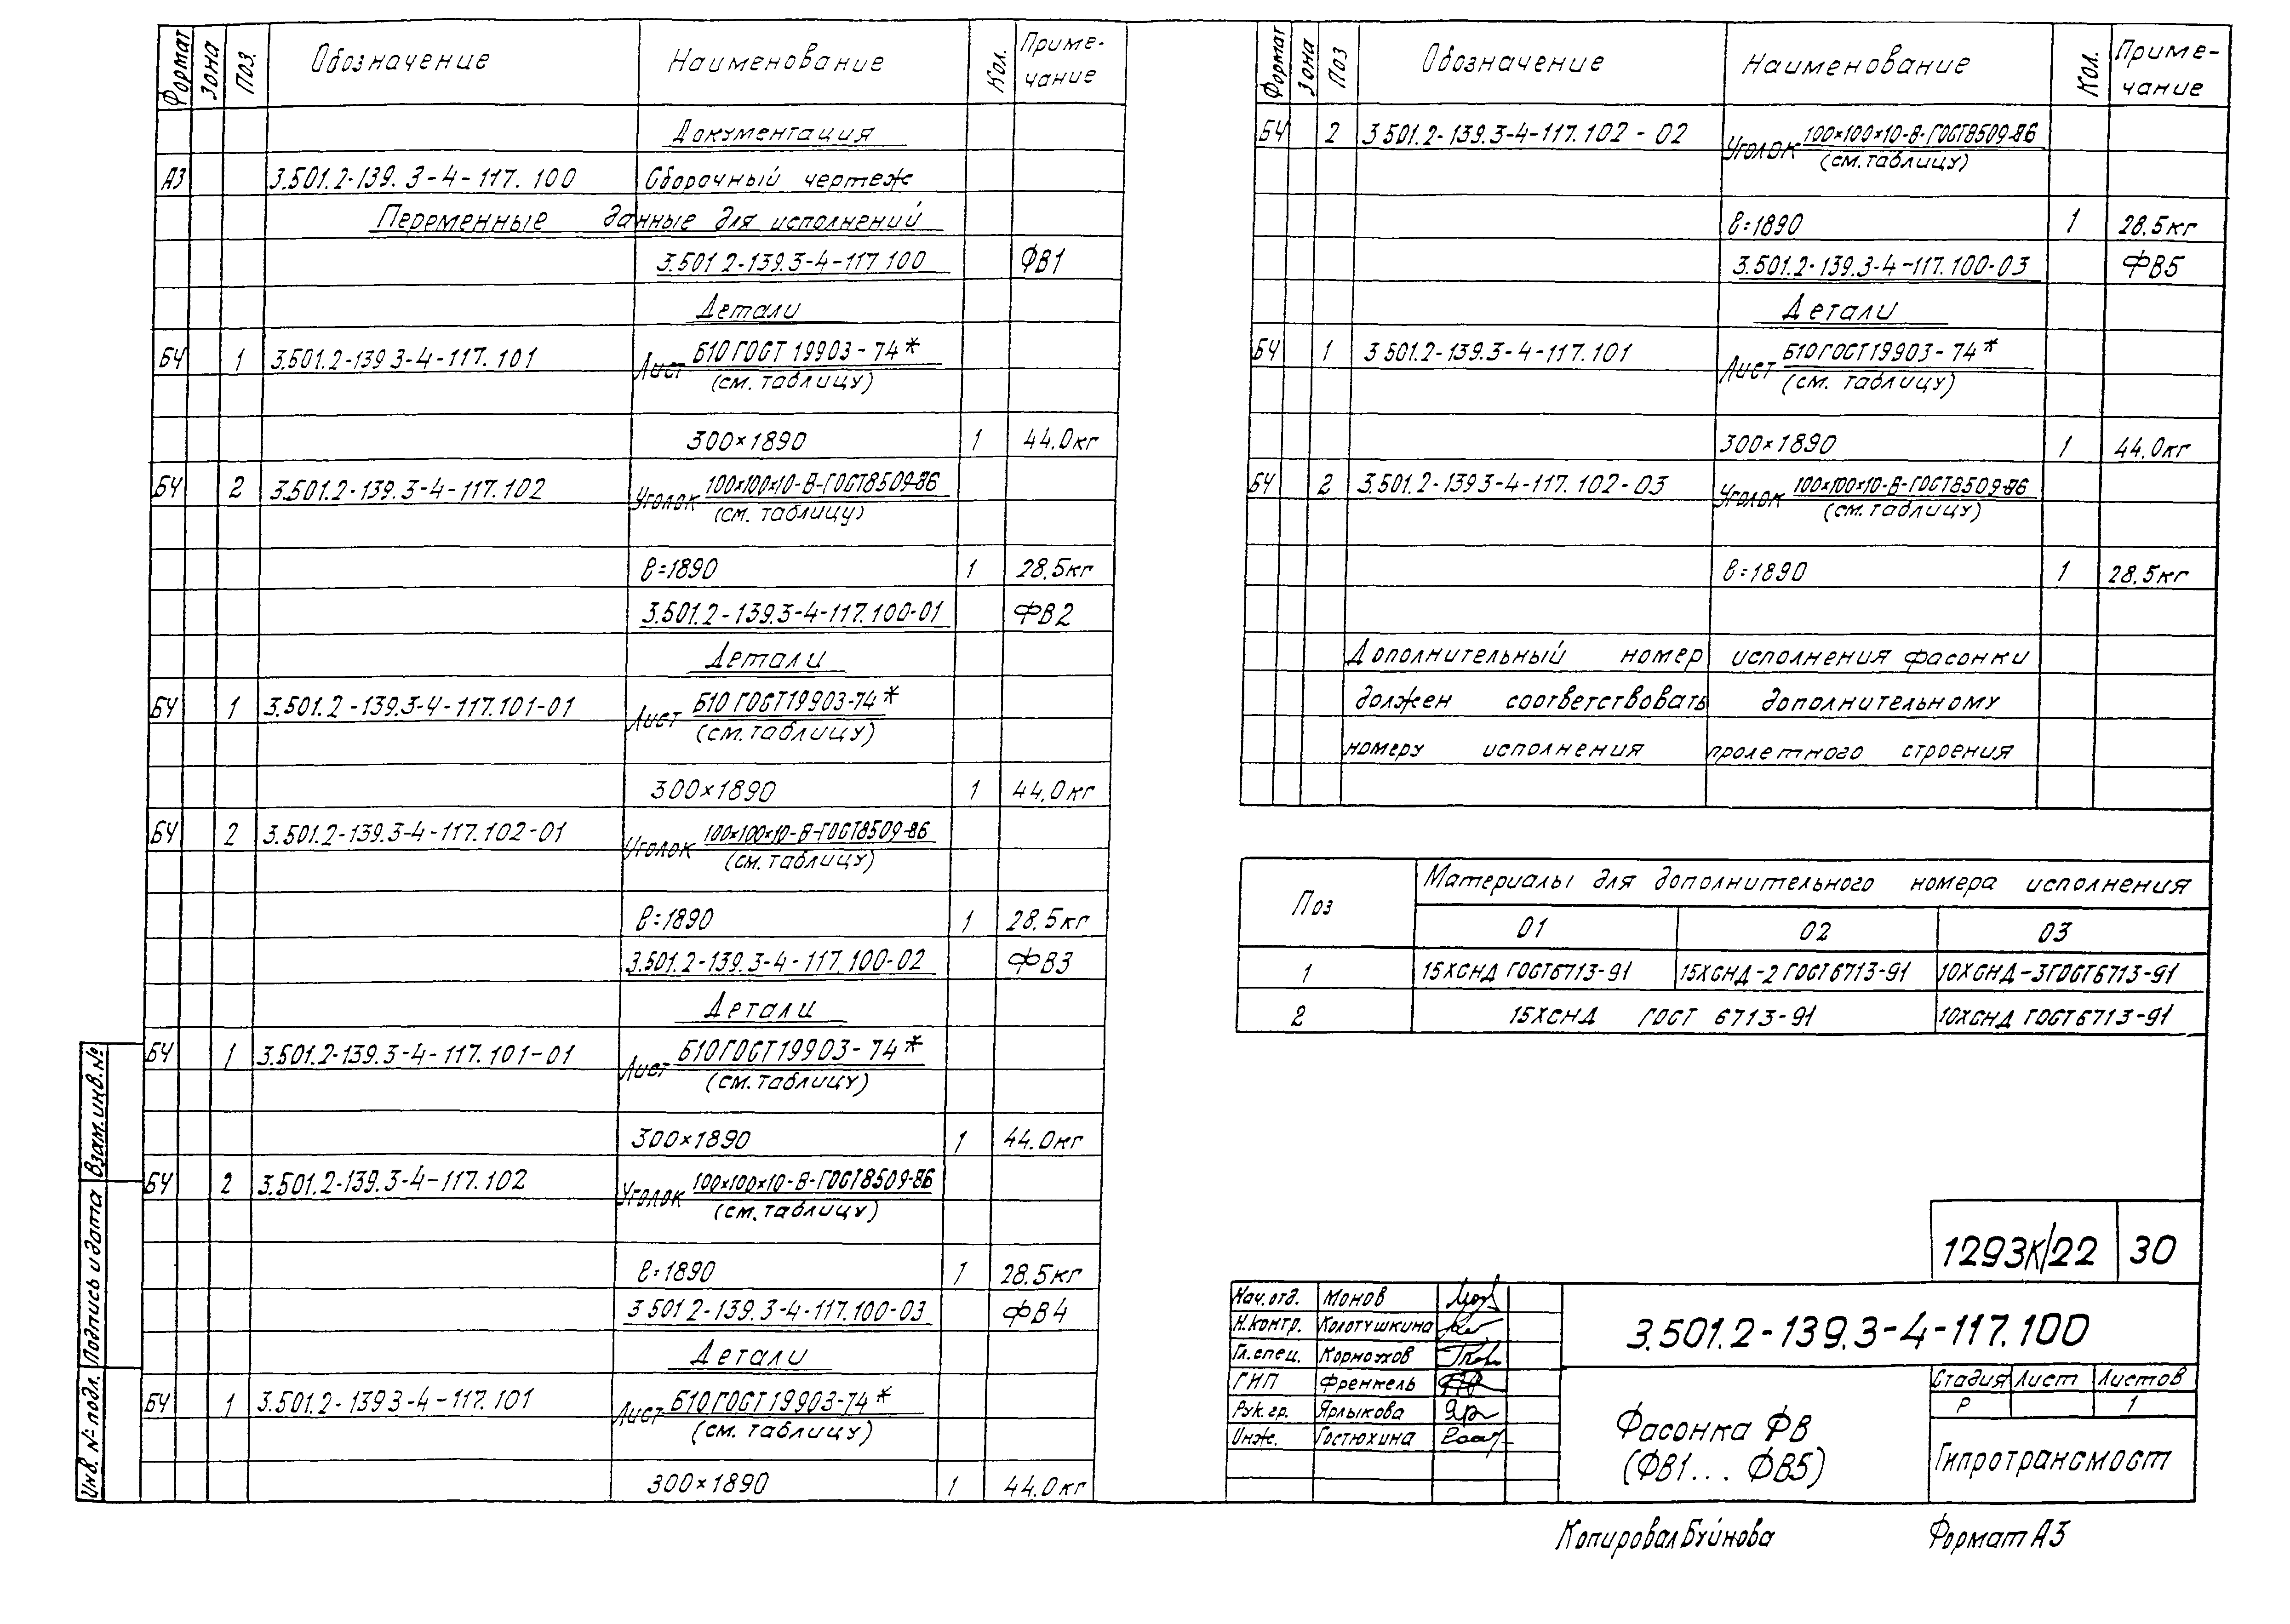 Формат Зона Поз. Обозначение Наименование Кол. Приме-
чание
Документация
А3 3.501.2-139.3-4-117.100 Сборочный чертеж
Переменные данные для исполнений
3.501 2-139.3-4-117 100 ФВ1
Детали
БЧ 1 3.501.2-139 3-4-117.101 Лист Б10 ГОСТ 19903-74*
(см. таблицу)
300×1890 1 44.0кг
БЧ 2 3.501.2-139.3-4-117.102 Уголок 100×100×10-В-ГОСТ8509-86
(см. таблицу)
ℓ=1890 1 28.5кг
3.501.2-139.3-4-117.100-01 ФВ2
Детали
БЧ 1 3.501.2-139.3-4-117.101-01 Лист Б10 ГОСТ19903-74*
(см. таблицу)
300×1890 1 44.0кг
БЧ 2 3.501.2-139.3-4-117.102-01 Уголок 100×100×10-В-ГОСТ8509-86
(см. таблицу)
ℓ=1890 1 28.5кг
3.501.2-139.3-4-117.100-02 ФВ3
Детали
БЧ 1 3.501.2-139.3-4-117.101-01 Лист Б10 ГОСТ19903-74*
(см. таблицу)
300×1890 1 44.0кг
БЧ 2 3.501.2-139.3-4-117.102 Уголок 100×100×10-В-ГОСТ8509-86
(см. таблицу)
ℓ=1890 1 28.5кг
3 501 2-139.3-4-117.100-03 ФВ4
Детали
БЧ 1 3.501.2-139 3-4-117.101 Лист Б10 ГОСТ19903-74*
(см. таблицу)
300×1890 1 44.0кг
Формат Зона Поз Обозначение Наименование Кол. Приме-
чание
БЧ 2 3.501.2-139.3-4-117.102-02 Уголок 100×100×10-В-ГОСТ8509-86
(см. таблицу)
ℓ=1890 1 28.5кг
3.501.2-139.3-4-117.100-03 ФВ5
Детали
БЧ 1 3 501.2-139.3-4-117.101 Лист Б10 ГОСТ19903-74*
(см. таблицу)
300×1890 1 44.0кг
БЧ 2 3.501.2-139 3-4-117.102-03 Уголок 100×100×10-В-ГОСТ8509-86
(см. таблицу)
ℓ=1890 1 28.5кг
Дополнительный номер исполнения фасонки
должен соответствовать дополнительному
номеру исполнения пролетного строения
Поз Материалы для дополнительного номера исполнения
01 02 03
1 15ХСНД ГОСТ6713-91 15ХСНД-2 ГОСТ6713-91 10ХСНД-3ГОСТ6713-91
2 15ХСНД ГОСТ 6713-91 10ХСНД ГОСТ6713-91
1293К/22 30
Нач.отд. Монов
Н.контр. Колотушкина
Гл.спец. Корноухов
ГИП Френкель
Рук.гр. Ярлыкова
Инж. Гостюхина
3.501.2-139.3-4-117.100
Фасонка ФВ
(ФВ1... ФВ5)
Стадия Лист Листов
Р 1
Гипротрансмост
Инв. № подл. Подпись и дата Взам.инв.№
Копировал Буйнова Формат А3